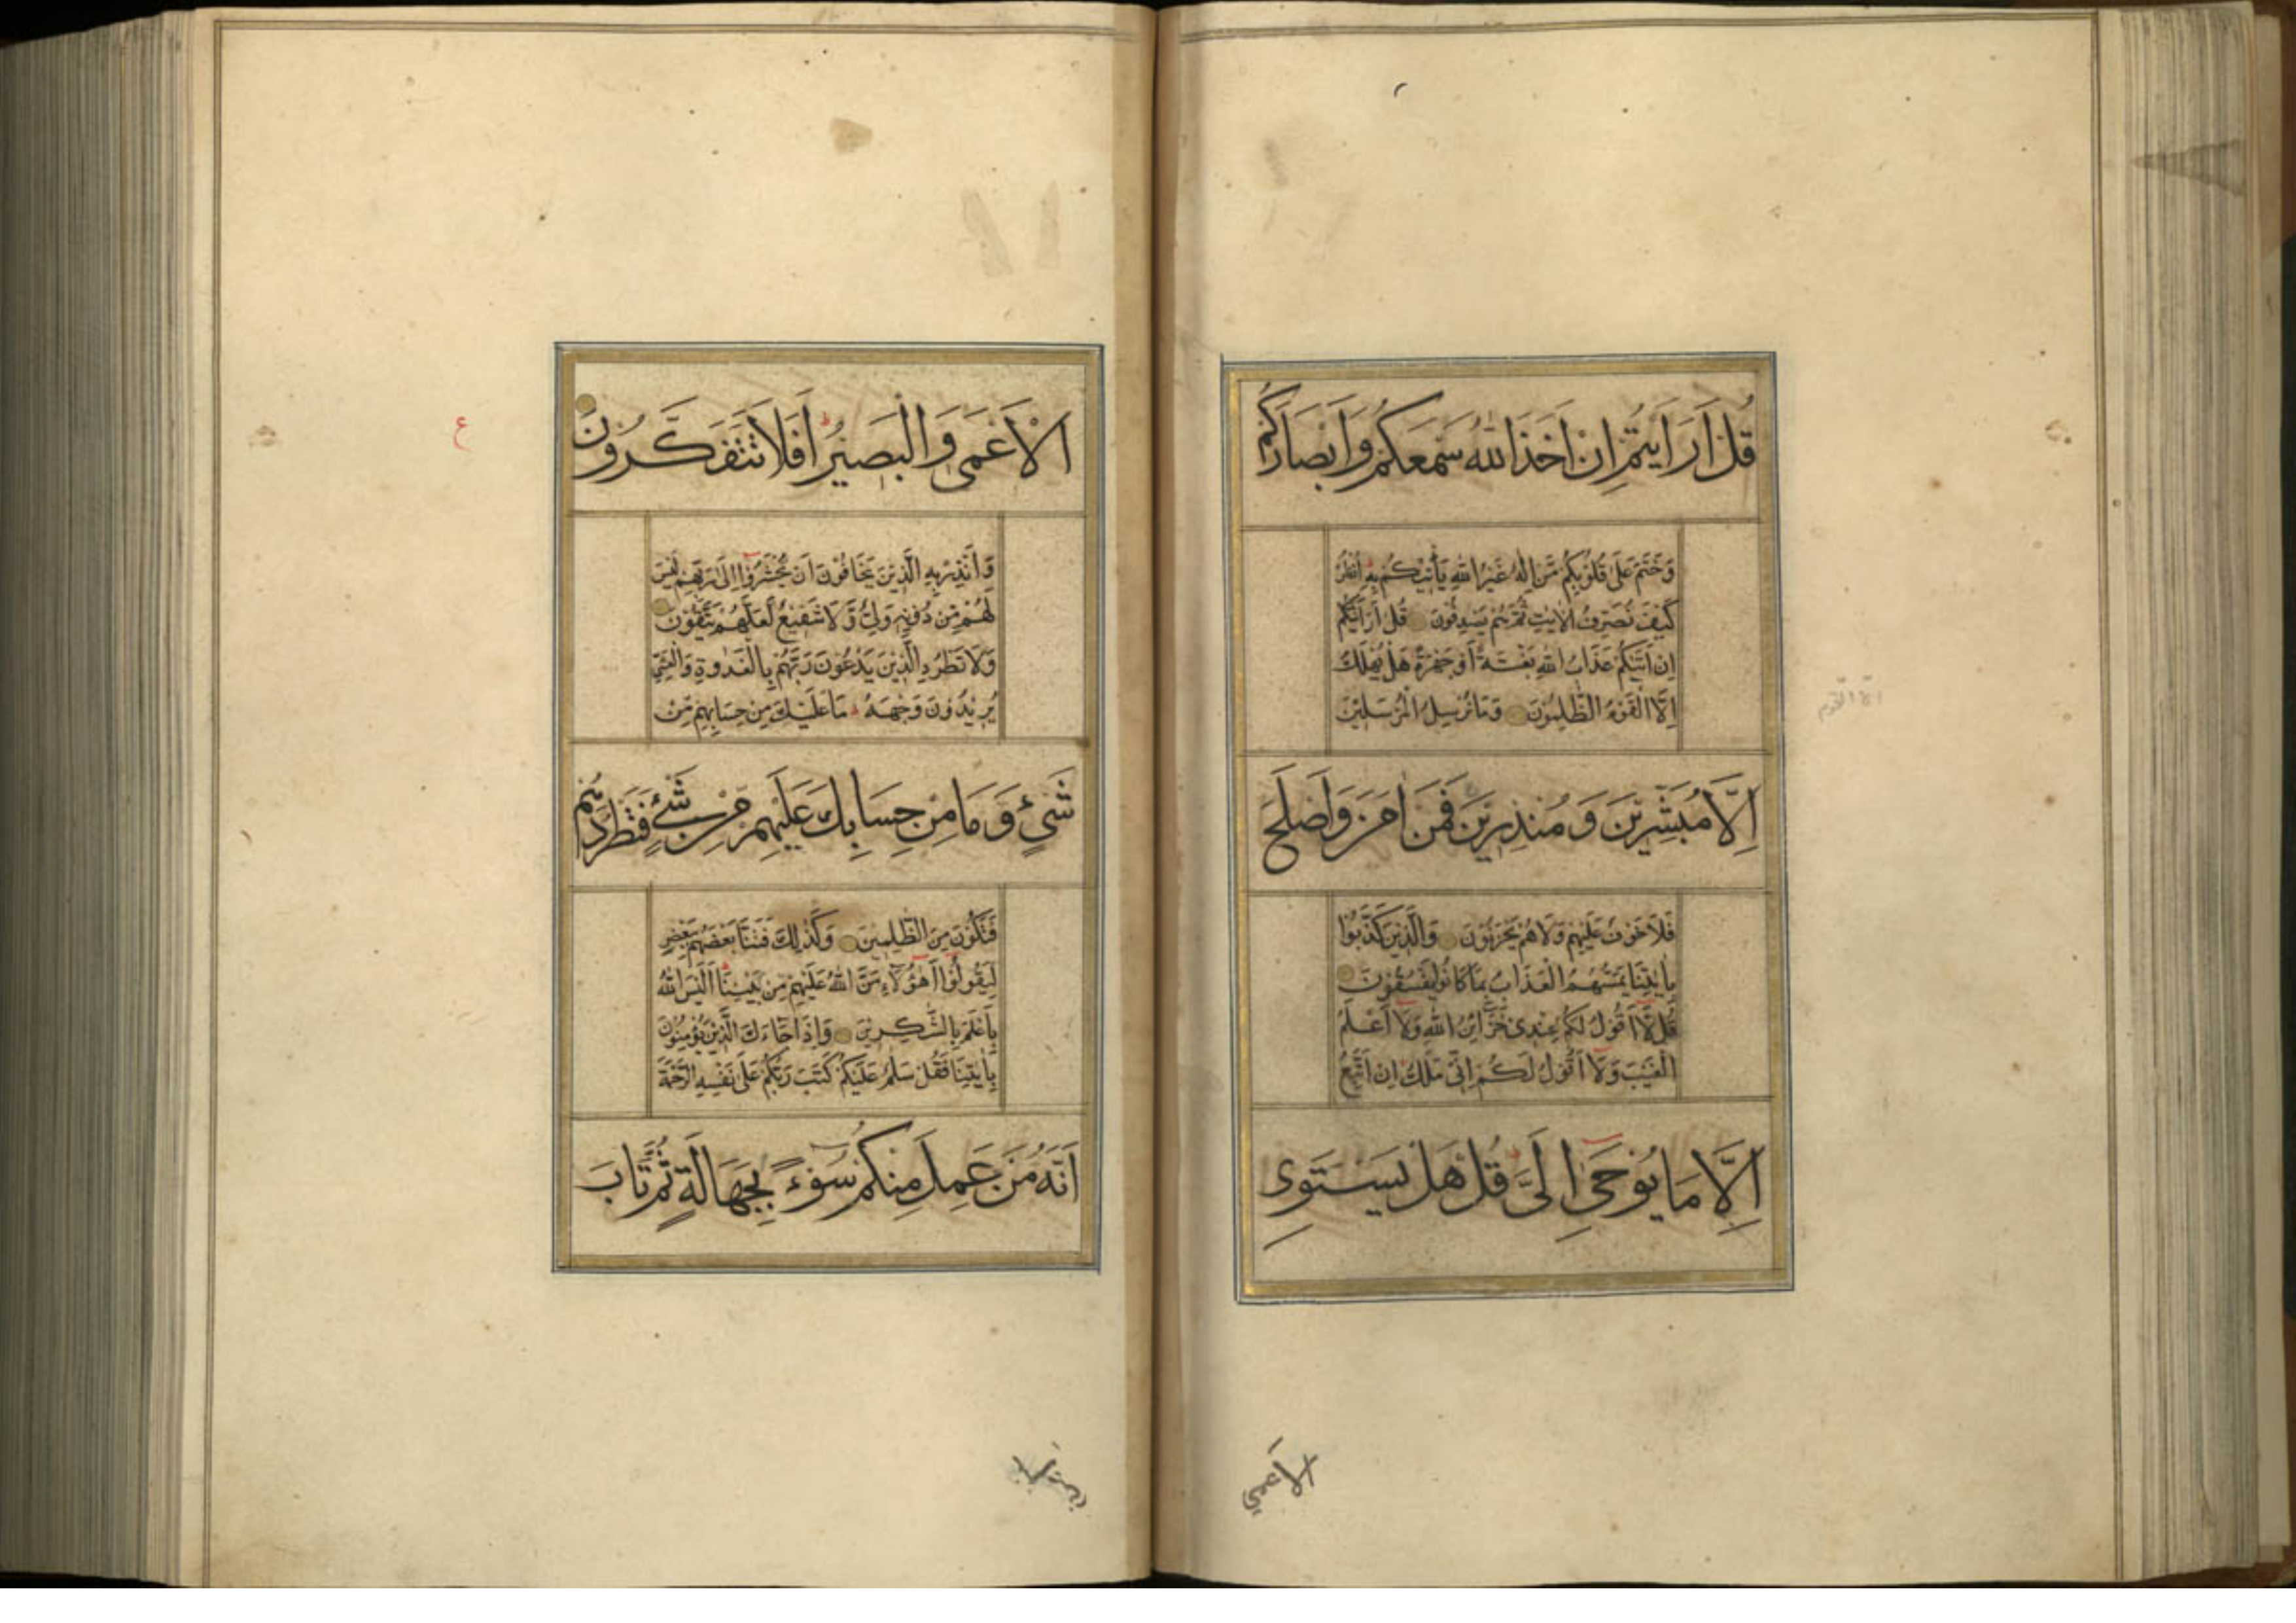 قُلْ اَرَاَيْتُمْ اِنْ اَخَذَ اللهُ سَمْعَكُمْ وَاَبْصَارَكُمْ
وَخَتَمَ عَلٰى قُلُوْبِكُمْ مَّنْ اِلٰهٌ غَيْرُ اللهِ يَأْتِيْكُمْ بِهِ اُنْظُرْ
كَيْفَ نُصَرِّفُ الْاٰيٰتِ ثُمَّ هُمْ يَصْدِفُوْنَ قُلْ اَرَاَيْتَكُمْ
اِنْ اَتٰىكُمْ عَذَابُ اللهِ بَغْتَةً اَوْ جَهْرَةً هَلْ يُهْلَكُ
اِلَّا الْقَوْمُ الظّٰلِمُوْنَ وَمَا نُرْسِلُ الْمُرْسَلِيْنَ
اِلَّا مُبَشِّرِيْنَ وَمُنْذِرِيْنَ فَمَنْ اٰمَنَ وَاَصْلَحَ
فَلَا خَوْفٌ عَلَيْهِمْ وَلَا هُمْ يَحْزَنُوْنَ وَالَّذِيْنَ كَذَّبُوْا
بِاٰيٰتِنَا يَمَسُّهُمُ الْعَذَابُ بِمَا كَانُوْا يَفْسُقُوْنَ
قُلْ لَّا اَقُوْلُ لَكُمْ عِنْدِىْ خَزَائِنُ اللهِ وَلَا اَعْلَمُ
الْغَيْبَ وَلَا اَقُوْلُ لَكُمْ اِنِّىْ مَلَكٌ اِنْ اَتَّبِعُ
اِلَّا مَا يُوْحٰى اِلَىَّ قُلْ هَلْ يَسْتَوِى
الاعمى
الْاَعْمٰى وَالْبَصِيْرُ اَفَلَا تَتَفَكَّرُوْنَ
ع
وَاَنْذِرْ بِهِ الَّذِيْنَ يَخَافُوْنَ اَنْ يُّحْشَرُوْا اِلٰى رَبِّهِمْ لَيْسَ
لَهُمْ مِّنْ دُوْنِهٖ وَلِىٌّ وَّلَا شَفِيْعٌ لَّعَلَّهُمْ يَتَّقُوْنَ
وَلَا تَطْرُدِ الَّذِيْنَ يَدْعُوْنَ رَبَّهُمْ بِالْغَدٰوةِ وَالْعَشِىِّ
يُرِيْدُوْنَ وَجْهَهُ مَا عَلَيْكَ مِنْ حِسَابِهِمْ مِّنْ
شَىْءٍ وَّمَا مِنْ حِسَابِكَ عَلَيْهِمْ مِّنْ شَىْءٍ فَتَطْرُدَهُمْ
فَتَكُوْنَ مِنَ الظّٰلِمِيْنَ وَكَذٰلِكَ فَتَنَّا بَعْضَهُمْ بِبَعْضٍ
لِّيَقُوْلُوْا اَهٰؤُلَاءِ مَنَّ اللهُ عَلَيْهِمْ مِّنْ بَيْنِنَا اَلَيْسَ اللهُ
بِاَعْلَمَ بِالشّٰكِرِيْنَ وَاِذَا جَاءَكَ الَّذِيْنَ يُؤْمِنُوْنَ
بِاٰيٰتِنَا فَقُلْ سَلٰمٌ عَلَيْكُمْ كَتَبَ رَبُّكُمْ عَلٰى نَفْسِهِ الرَّحْمَةَ
اَنَّهُ مَنْ عَمِلَ مِنْكُمْ سُوْءً بِجَهَالَةٍ ثُمَّ تَابَ